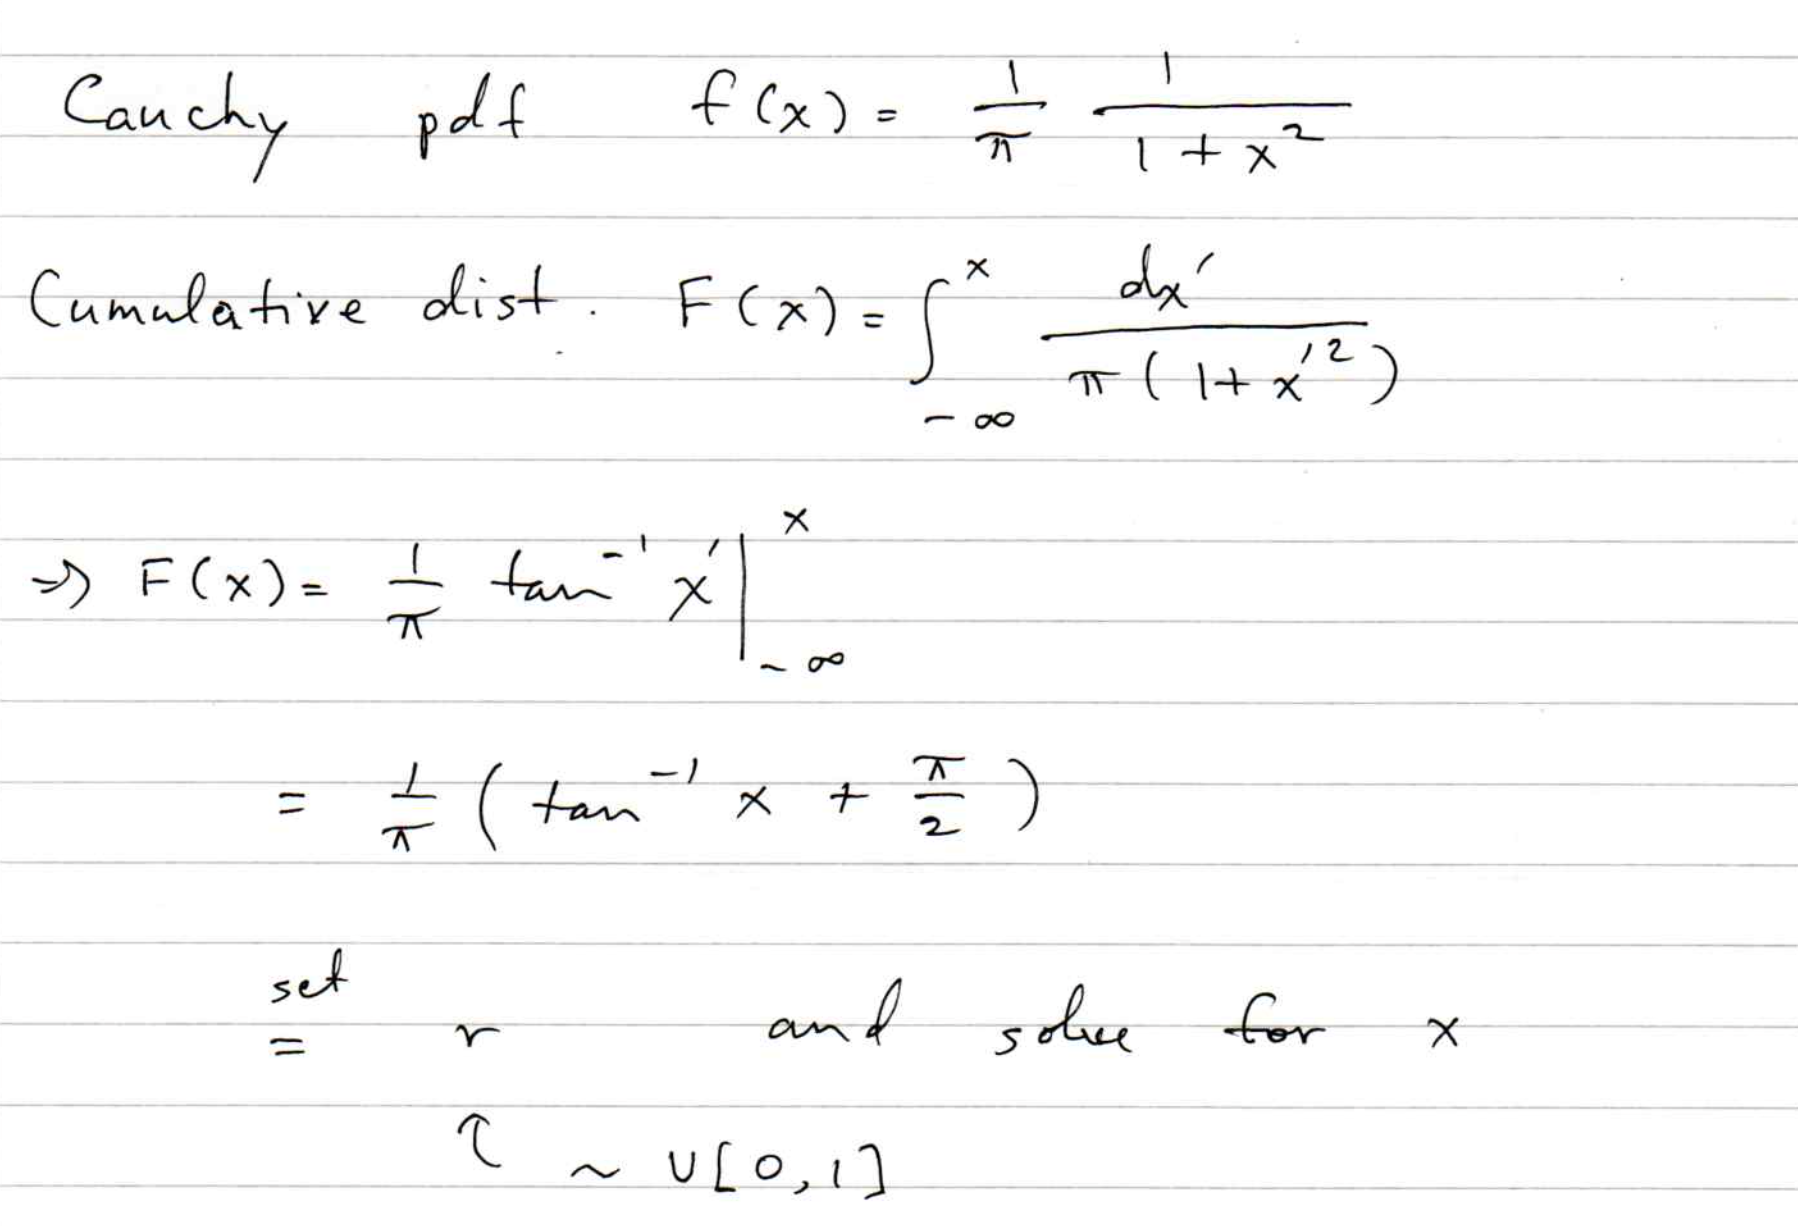 Cauchy pdf f(x) = \frac{1}{\pi} \frac{1}{1 + x^2}
Cumulative dist. F(x) = \int_{-\infty}^{x} \frac{dx'}{\pi (1 + x'^2)}
⇒ F(x) = \frac{1}{\pi} \tan^{-1} x' |_{-\infty}^{x}
= \frac{1}{\pi} ( \tan^{-1} x + \frac{\pi}{2} )
set
= r and solve for x
↑ ~ U[0,1]